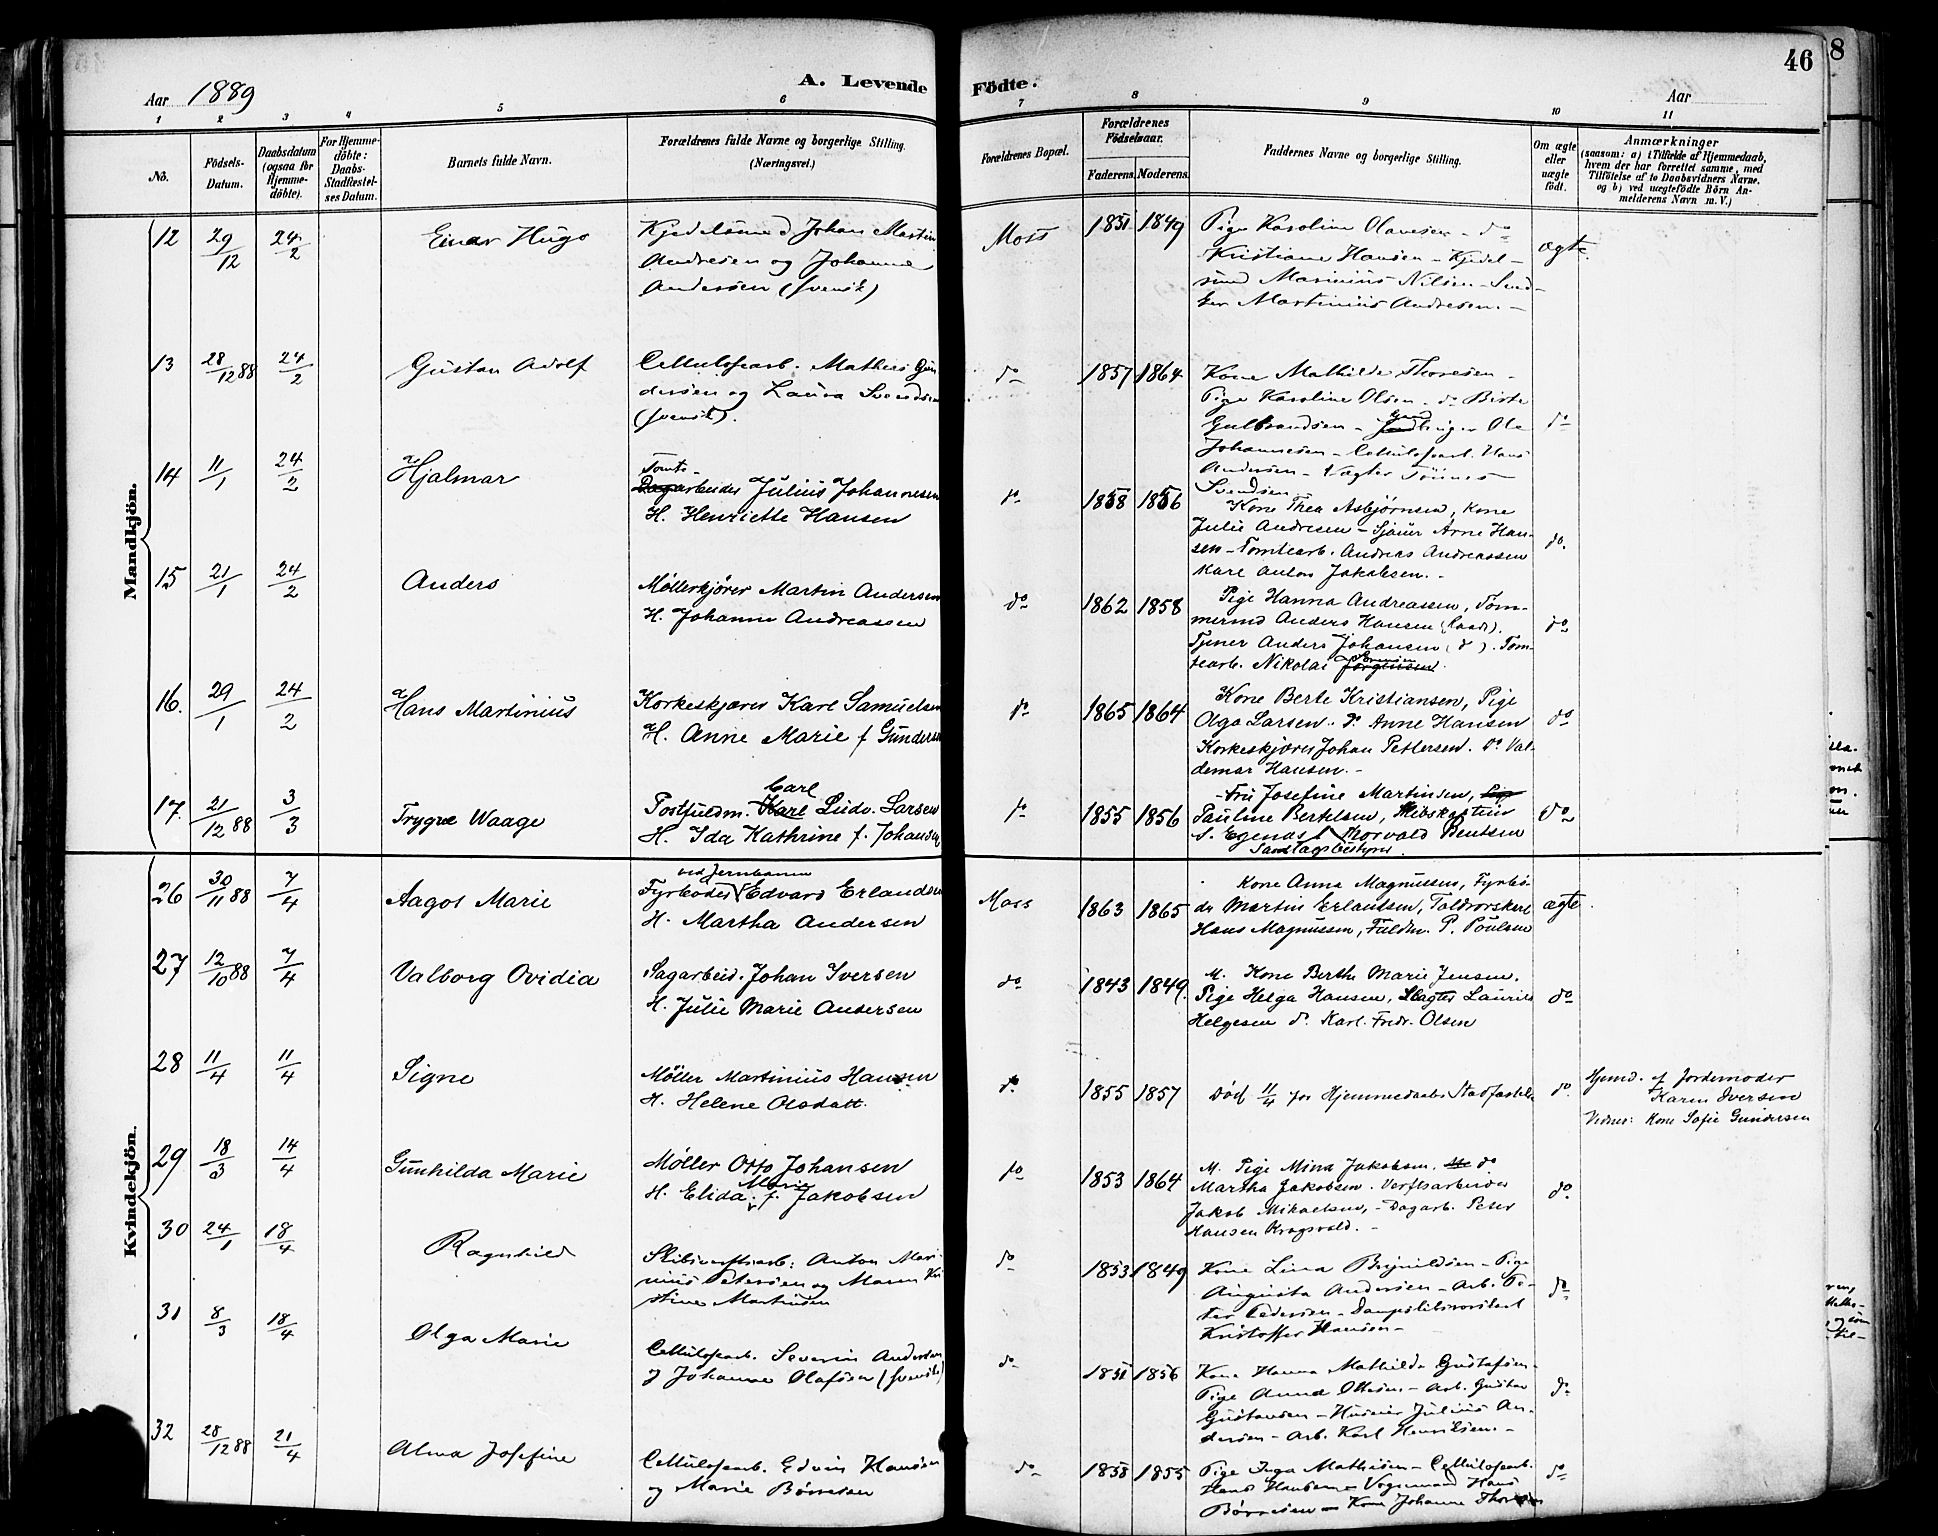 46
8
Aar 1889
A. Levende
Födte.
Aar
1 2 3 4 5 6 7 8 9 10 11
No.
Födsels-
Datum.
Daabsdatum
(ogsaa for
Hjemme-
döbte).
For Hjemme-
döbte:
Daabs-
Stadfæstel-
ses Datum.
Barnets fulde Navn.
Forældrenes fulde Navne og borgerlige Stilling.
(Næringsvei.)
Forældrenes Bopæl.
Forældrenes
Födselsaar.
Faderens. Moderens.
Faddernes Navne og borgerlige Stilling.
Om ægte
eller
uægte
født.
Anmærkninger
(saasom: a) i Tilfælde af Hjemmedaab,
hvem der har forrettet samme, med
Tilföielse af to Daabsvidners Navne,
og b) ved uægtefödte Börn An-
melderens Navn m. V.)
Mandkjön.
12 29/12 24/2 Einar Hugo
Kjedelsmed Johan Martin
Andresen og Johanne
Andersen (svensk)
Moss 1851 1849
Pige Karoline Olavesen - do
Kristiane Hansen - Kjedel-
smed Marinius Nilsen - Sned-
ker Martinius Andresen. -
ægte.
13 28/12 88 24/2 Gustav Adolf
Cellulosearb. Mathias Gun
dersen og Laura Svendsen
(svensk).
do 1857 1864
Kone Mathilde Thoresen -
Pige Karoline Olsen - do Birte
Gulbrandsen - Ole
Johannesen - Cellulosearb. Hans
Andersen - Vagter Tönnes
Svendsen
do
14 11/1 24/2 Hjalmar
Tomte-
Dagarbeider Julius Johannesen
H. Henriette Hansen
do 1858 1856
Kone Thea Asbjørnsen, Kone
Julie Andresen - Sjauer Arne Han-
sen - Tomtearb. Andreas Andreassen
Karl Anton Jakobsen. -
do.
15 21/1 24/2 Anders
Møllerkjører Martin Andersen
H. Johanne Andreassen
do 1862 1858
Pige Hanna Andreassen, Tøm-
mermd Anders Hansen (Raade).
Tjener Anders Johansen (do). Tom-
tearb. Nikolai Jørgensen.
do
16. 29/1 24/2 Hans Martinius
Korkeskjærer Karl Samuelsen
H. Anne Marie f Gunders
do 1865 1864
Kone Berte Kristiansen, Pige
Olga Larsen. do Anne Hansen
Korkeskjærer Johan Pettersen. do Val-
demar Hansen. -
do
17. 21/12 88 3/3 Trygve Waage
Carl
Postfuldm. Karl Ludv. Larsen
H. Ida Kathrine f. Johansen
do 1855 1856
- Frú Josefine Martinsen,
Pauline Bertelsen, Skibskaptein
S. Egenæs, Thorvald Bentsen
do
Kvindekjön.
26 30/11 88 7/4 Aagot Marie
ved Jernbanen
Fyrbøder Edvard Erlandsen
H. Martha Andersen
Moss 1863 1865
Kone Anna Magnussen, Fyrbø-
der Martin Erlantsen, Toldrorskarl
Hans Magnussen, Fuldm. P. Poulsen
ægte.
27 12/10 88 7/4 Valborg Ovidia
Sagarbeid. Johan Iversen
H. Julie Marie Andersen
do 1843 1849.
M. Kone Berthe Marie Jensen.
Pige Helga Hansen, Slagter Laurits
Helgesen do. Karl. Fredr. Olsen
do
28 11/4 11/4 Signe
Møller Martinius Hansen
H. Helene Olsdatt.
do 1855 1857
Død 11/4 før Hjemmedaabs Stadfæstelse
do.
Hjemd. af Jordemoder
Karen Iversen
Vidner: Kone Sofie Gundersen
29 18/3 14/4 Gunhilda Marie
Møller Otto Johansen
Marie
H. Elida f. Jakobsen
do 1853 1864
M. Pige Mina Jakobsen. do
Martha Jakobsen. Verftsarbeider
Jakob Mikaelsen, - Dagarb. Peter
Hansen Kragsvold. -
do.
30 24/1 18/4 Ragnhild
Skibsverftsarb: Anton Mari-
nius Petersen og Maren Kri
stine Martinsen
do 1853 1849
Kone Lina Brynildsen - Pige
Augusta Andersen - Arb. Pe-
ter Pedersen - Dampskibs
Kristoffer Hansen -
do
31 8/3 18/4 Olga Marie
Cellulosearb. Severin Andersen
og Johanne Olafsen (svensk)
do 1851 1856
Kone Hanna Mathilde Gustafsen -
Pige Anna Olsen - Arb. Gustav
Gustavsen - Huseier Julius An-
dersen - Arb. Karl Henriksen. -
do
32 28/12 88 21/4 Alma Josefine
Cellulosearb. Edvin Hansen
og Marie Børresen
do 1858 1855
Pige Inga Mathisen - Cellulosearb.
Hans Hansen - Vognmand Hans
Børresen - Kone Johanne
do